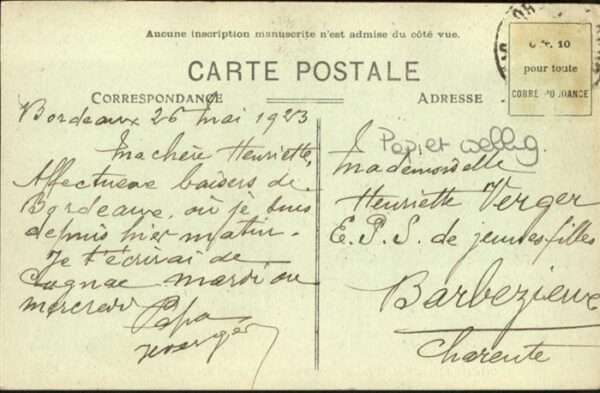 Aucune inscription manuscrite n'est admise du côté vue.
CARTE POSTALE
CORRESPONDANCE
ADRESSE
10
pour toute
CORRESPONDANCE
Bordeaux 26 Mai 1923
Ma chère Henriette,
Affectueux baisers de
Bordeaux, où je suis
depuis hier matin.
Je t'écrirai de
Cognac mardi ou
mercredi
Papa
Papier wellig
Mademoiselle
Henriette Verger
E.P.S. de jeunes filles
Barbezieux
Charente